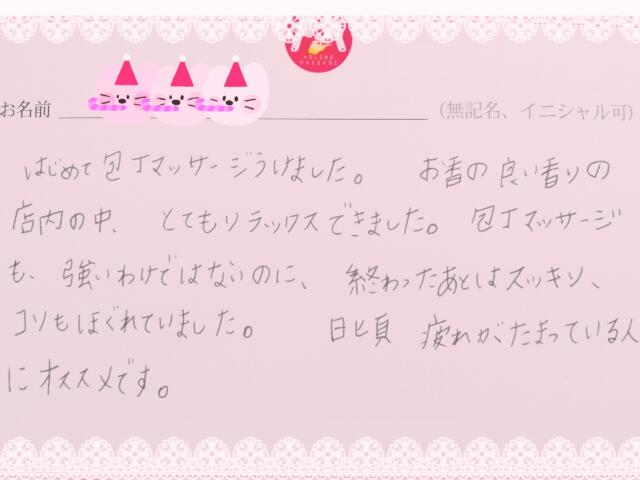 お名前
(無記名、イニシャル可)
はじめて包丁マッサージうけました。 お香の良い香りの
店内の中、とてもリラックスできました。包丁マッサージ
も、強いわけではないのに、終わったあとはスッキリ、
コリもほぐれていました。 日頃 疲れがたまっている人
にオススメです。